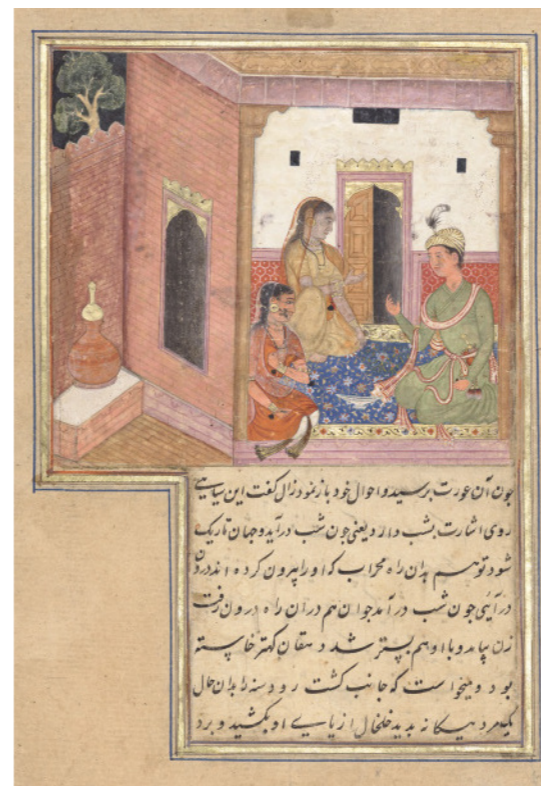 چون آن عورت برسید و احوال خود باز نمود زال گفت این سیاهی
روی اشارت بشب دارد یعنی چون شب درآید و جهان تاریک
شود تو هم بدان راه محراب که او را بیرون کرده اند درون
در آیی چون شب درآمد جوان هم دران راه درون رفت
زن بیامد و با او هم بستر شد دهقان کهتر خاسته
بود و میخواست که جانب کشت رود زن را بدان حال
با مرد بیگانه بدید خلخال از پای او بکشید و برد